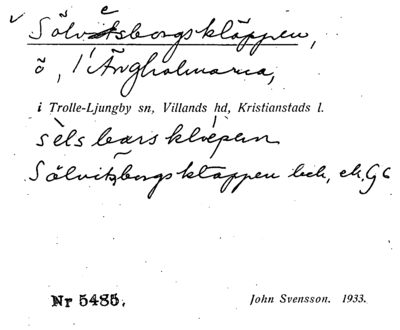 v Sölvesborgskläppen,
ö, 1 Ängholmarna,
i Trolle-Ljungby sn, Villands hd, Kristianstads l.
sèlsbarsklèpen
Sölvitsborgskläppen bek, ek, G6
Nr 5485. John Svensson. 1933.